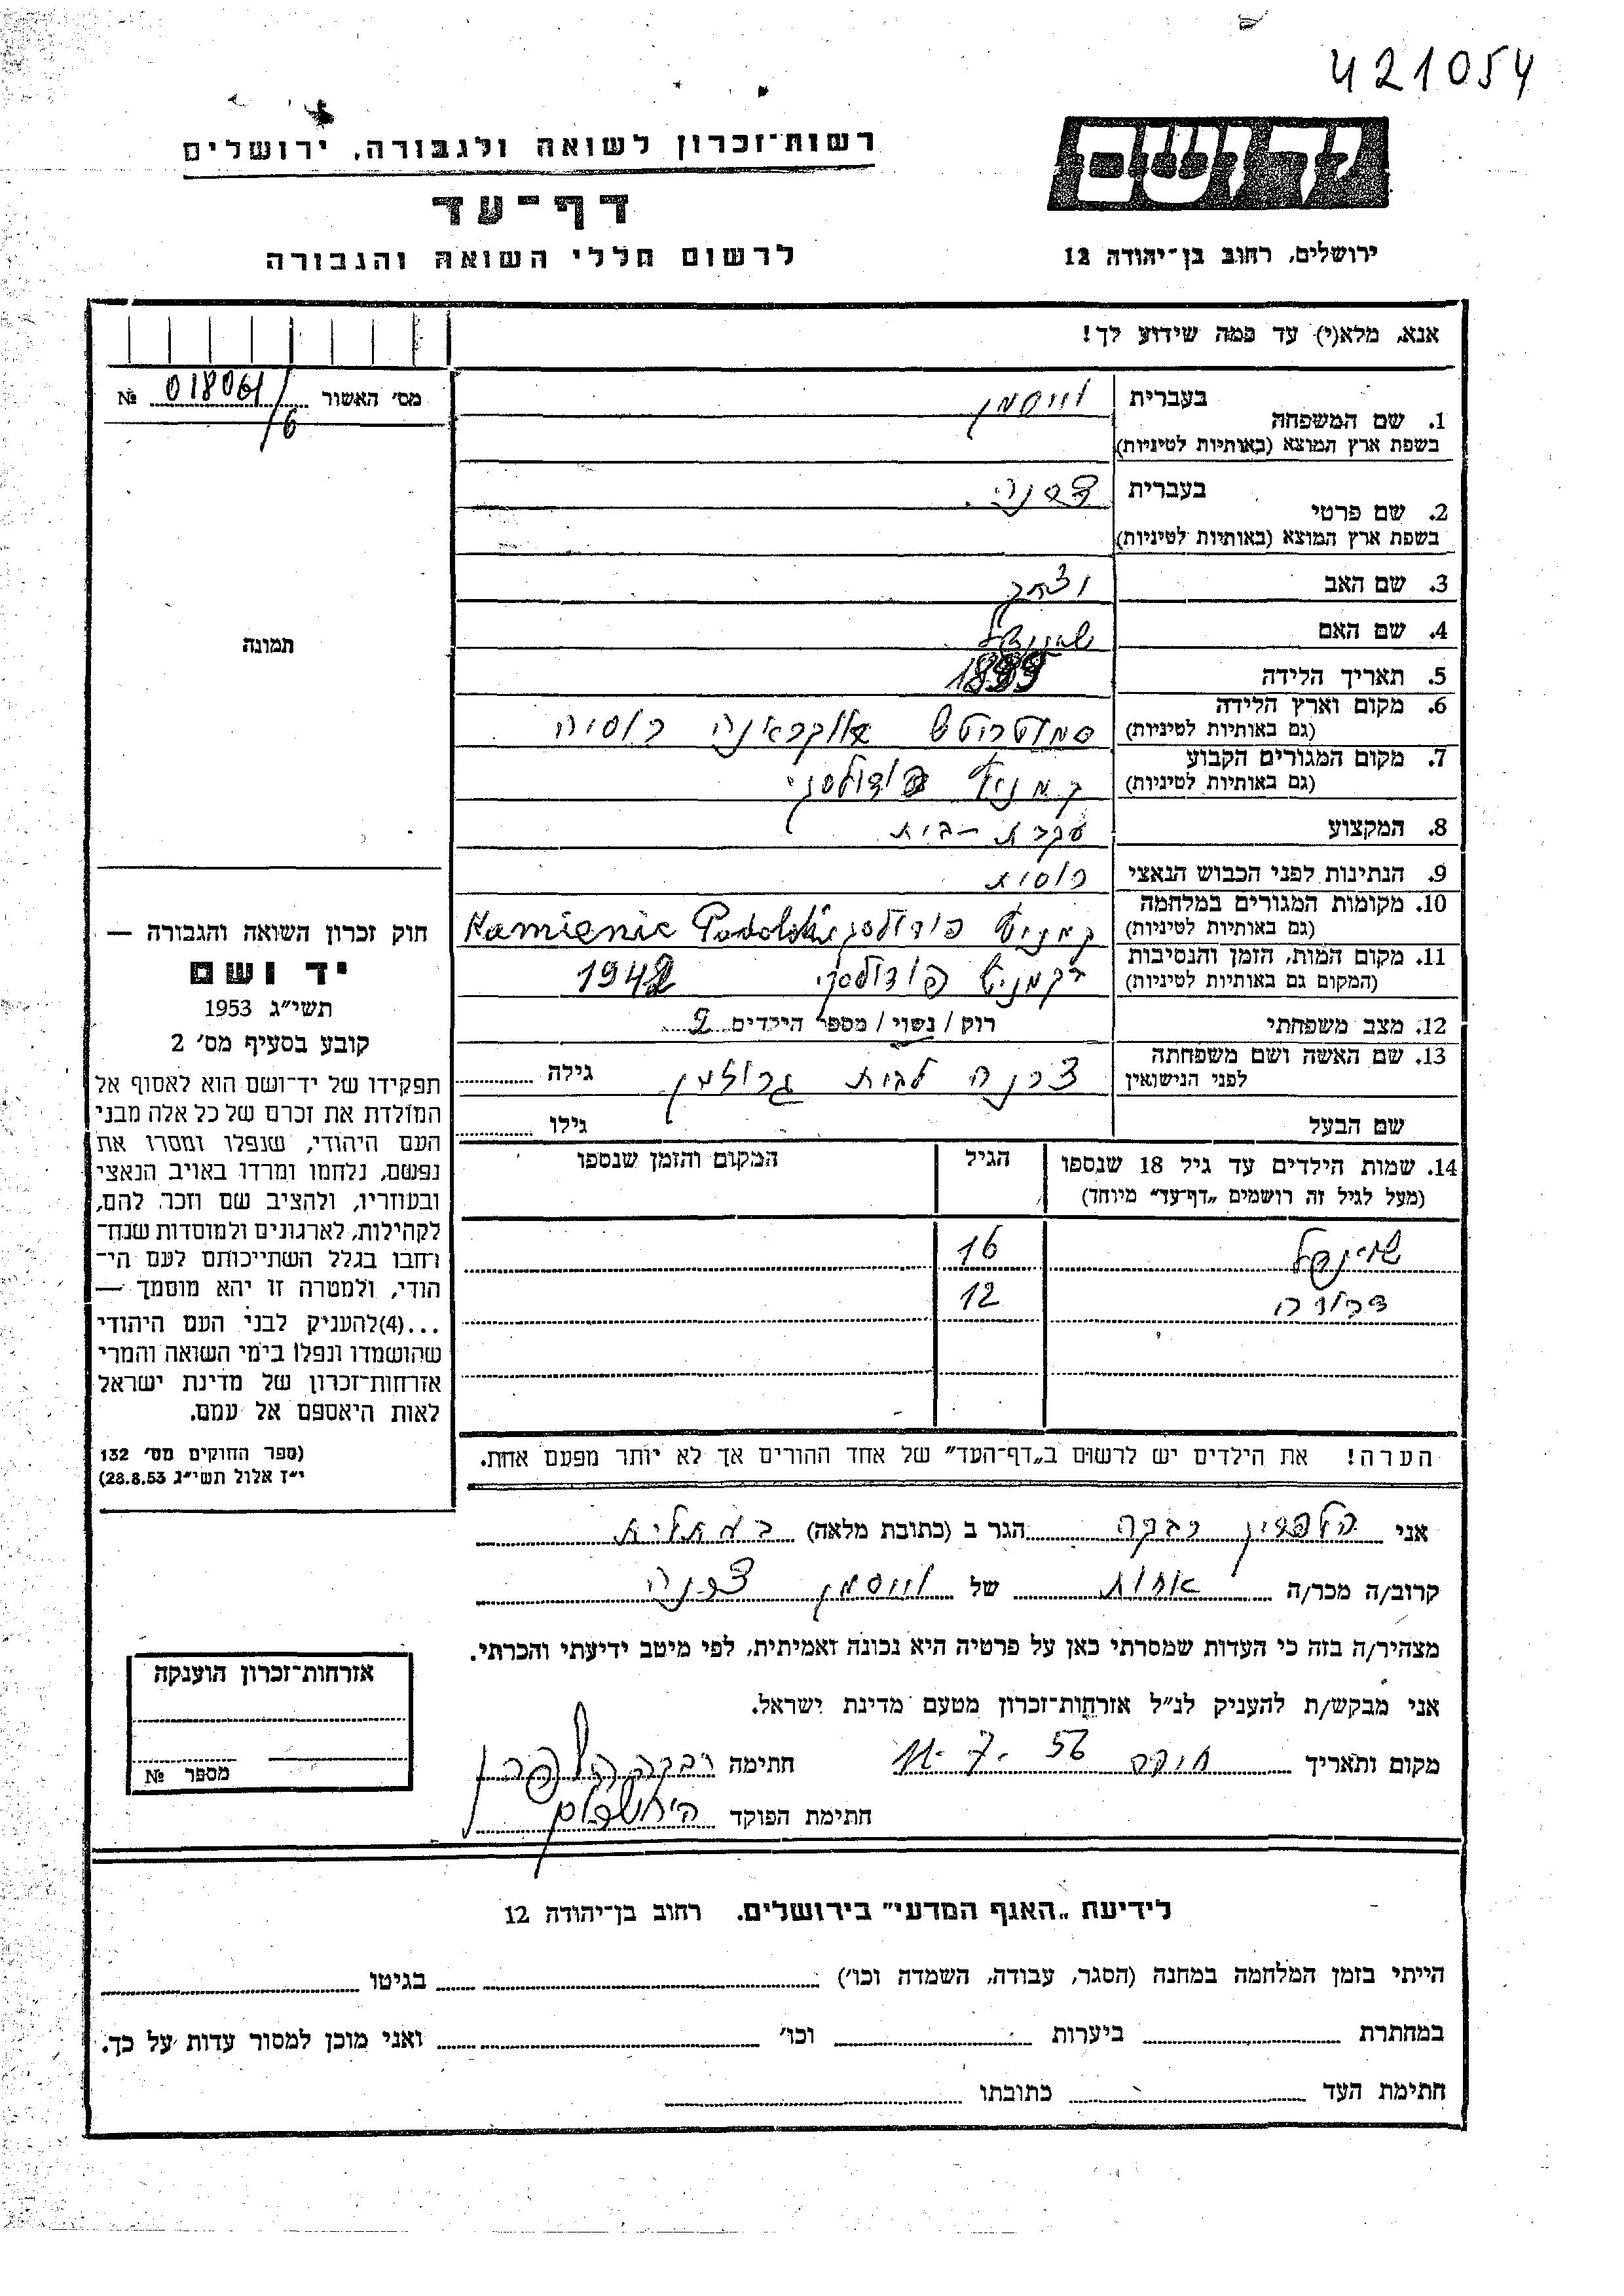 421054
רשות־זכרון לשואה ולגבורה, ירושלים
דף־עד
לרשום חללי השואה והגבורה
יד ושם
ירושלים, רחוב בן־יהודה 12
אנא, מלא(י) עד כמה שידוע לך!
מס' האשור 018061/6 №
1. שם המשפחה בעברית וויסמן
בשפת ארץ המוצא (באותיות לטיניות)
2. שם פרטי בעברית
בשפת ארץ המוצא (באותיות לטיניות)
3. שם האב
4. שם האם
5. תאריך הלידה 1899
6. מקום וארץ הלידה אוקראינה רוסיה
(גם באותיות לטיניות)
7. מקום המגורים הקבוע קמניץ פודולסקי
(גם באותיות לטיניות)
8. המקצוע עקרת-בית
9. הנתינות לפני הכבוש הנאצי רוסית
10. מקומות המגורים במלחמה קמניץ פודולסקי Kamienic Podolski
(גם באותיות לטיניות)
11. מקום המות, הזמן והנסיבות בקמניץ פודולסקי 1942
(המקום גם באותיות לטיניות)
12. מצב משפחתי רוק / נשוי / מספר הילדים 2
13. שם האשה ושם משפחתה לבית גרוזמן גילה
לפני הנישואין
שם הבעל גילו
14. שמות הילדים עד גיל 18 שנספו הגיל המקום והזמן שנספו
(מעל לגיל זה רושמים „דף־עד" מיוחד)
שיינדל 16
12
הערה! את הילדים יש לרשום ב„דף־העד" של אחד ההורים אך לא יותר מפעם אחת.
תמונה
חוק זכרון השואה והגבורה —
יד ושם
תשי"ג 1953
קובע בסעיף מס' 2
תפקידו של יד־ושם הוא לאסוף אל
המולדת את זכרם של כל אלה מבני
העם היהודי, שנפלו ומסרו את
נפשם, נלחמו ומרדו באויב הנאצי
ובעוזריו, ולהציב שם וזכר להם,
לקהילות, לארגונים ולמוסדות שנח־
רחבו בגלל השתייכותם לעם הי־
הודי, ולמטרה זו יהא מוסמך —
...(4)להעניק לבני העם היהודי
שהושמדו ונפלו בימי השואה והמרי
אזרחות־זכרון של מדינת ישראל
לאות היאספם אל עמם.
(ספר החוקים מס' 132
י"ז אלול תשי"ג 28.8.53)
אני הלפרין רבקה הגר ב (כתובת מלאה) בעתלית
קרוב/ה מכר/ה אחות של וויסמן
מצהיר/ה בזה כי העדות שמסרתי כאן על פרטיה היא נכונה ואמיתית, לפי מיטב ידיעתי והכרתי.
אני מבקש/ת להעניק לנ"ל אזרחות־זכרון מטעם מדינת ישראל.
מקום ותאריך חיפה 11-7-56 חתימה רבקה הלפרין
חתימת הפוקד
אזרחות־זכרון הוענקה
מספר №
לידיעת „האגף המדעי" בירושלים, רחוב בן־יהודה 12
הייתי בזמן המלחמה במחנה (הסגר, עבודה, השמדה וכו') בגיטו
במחתרת ביערות וכו' ואני מוכן למסור עדות על כך.
חתימת העד כתובתו